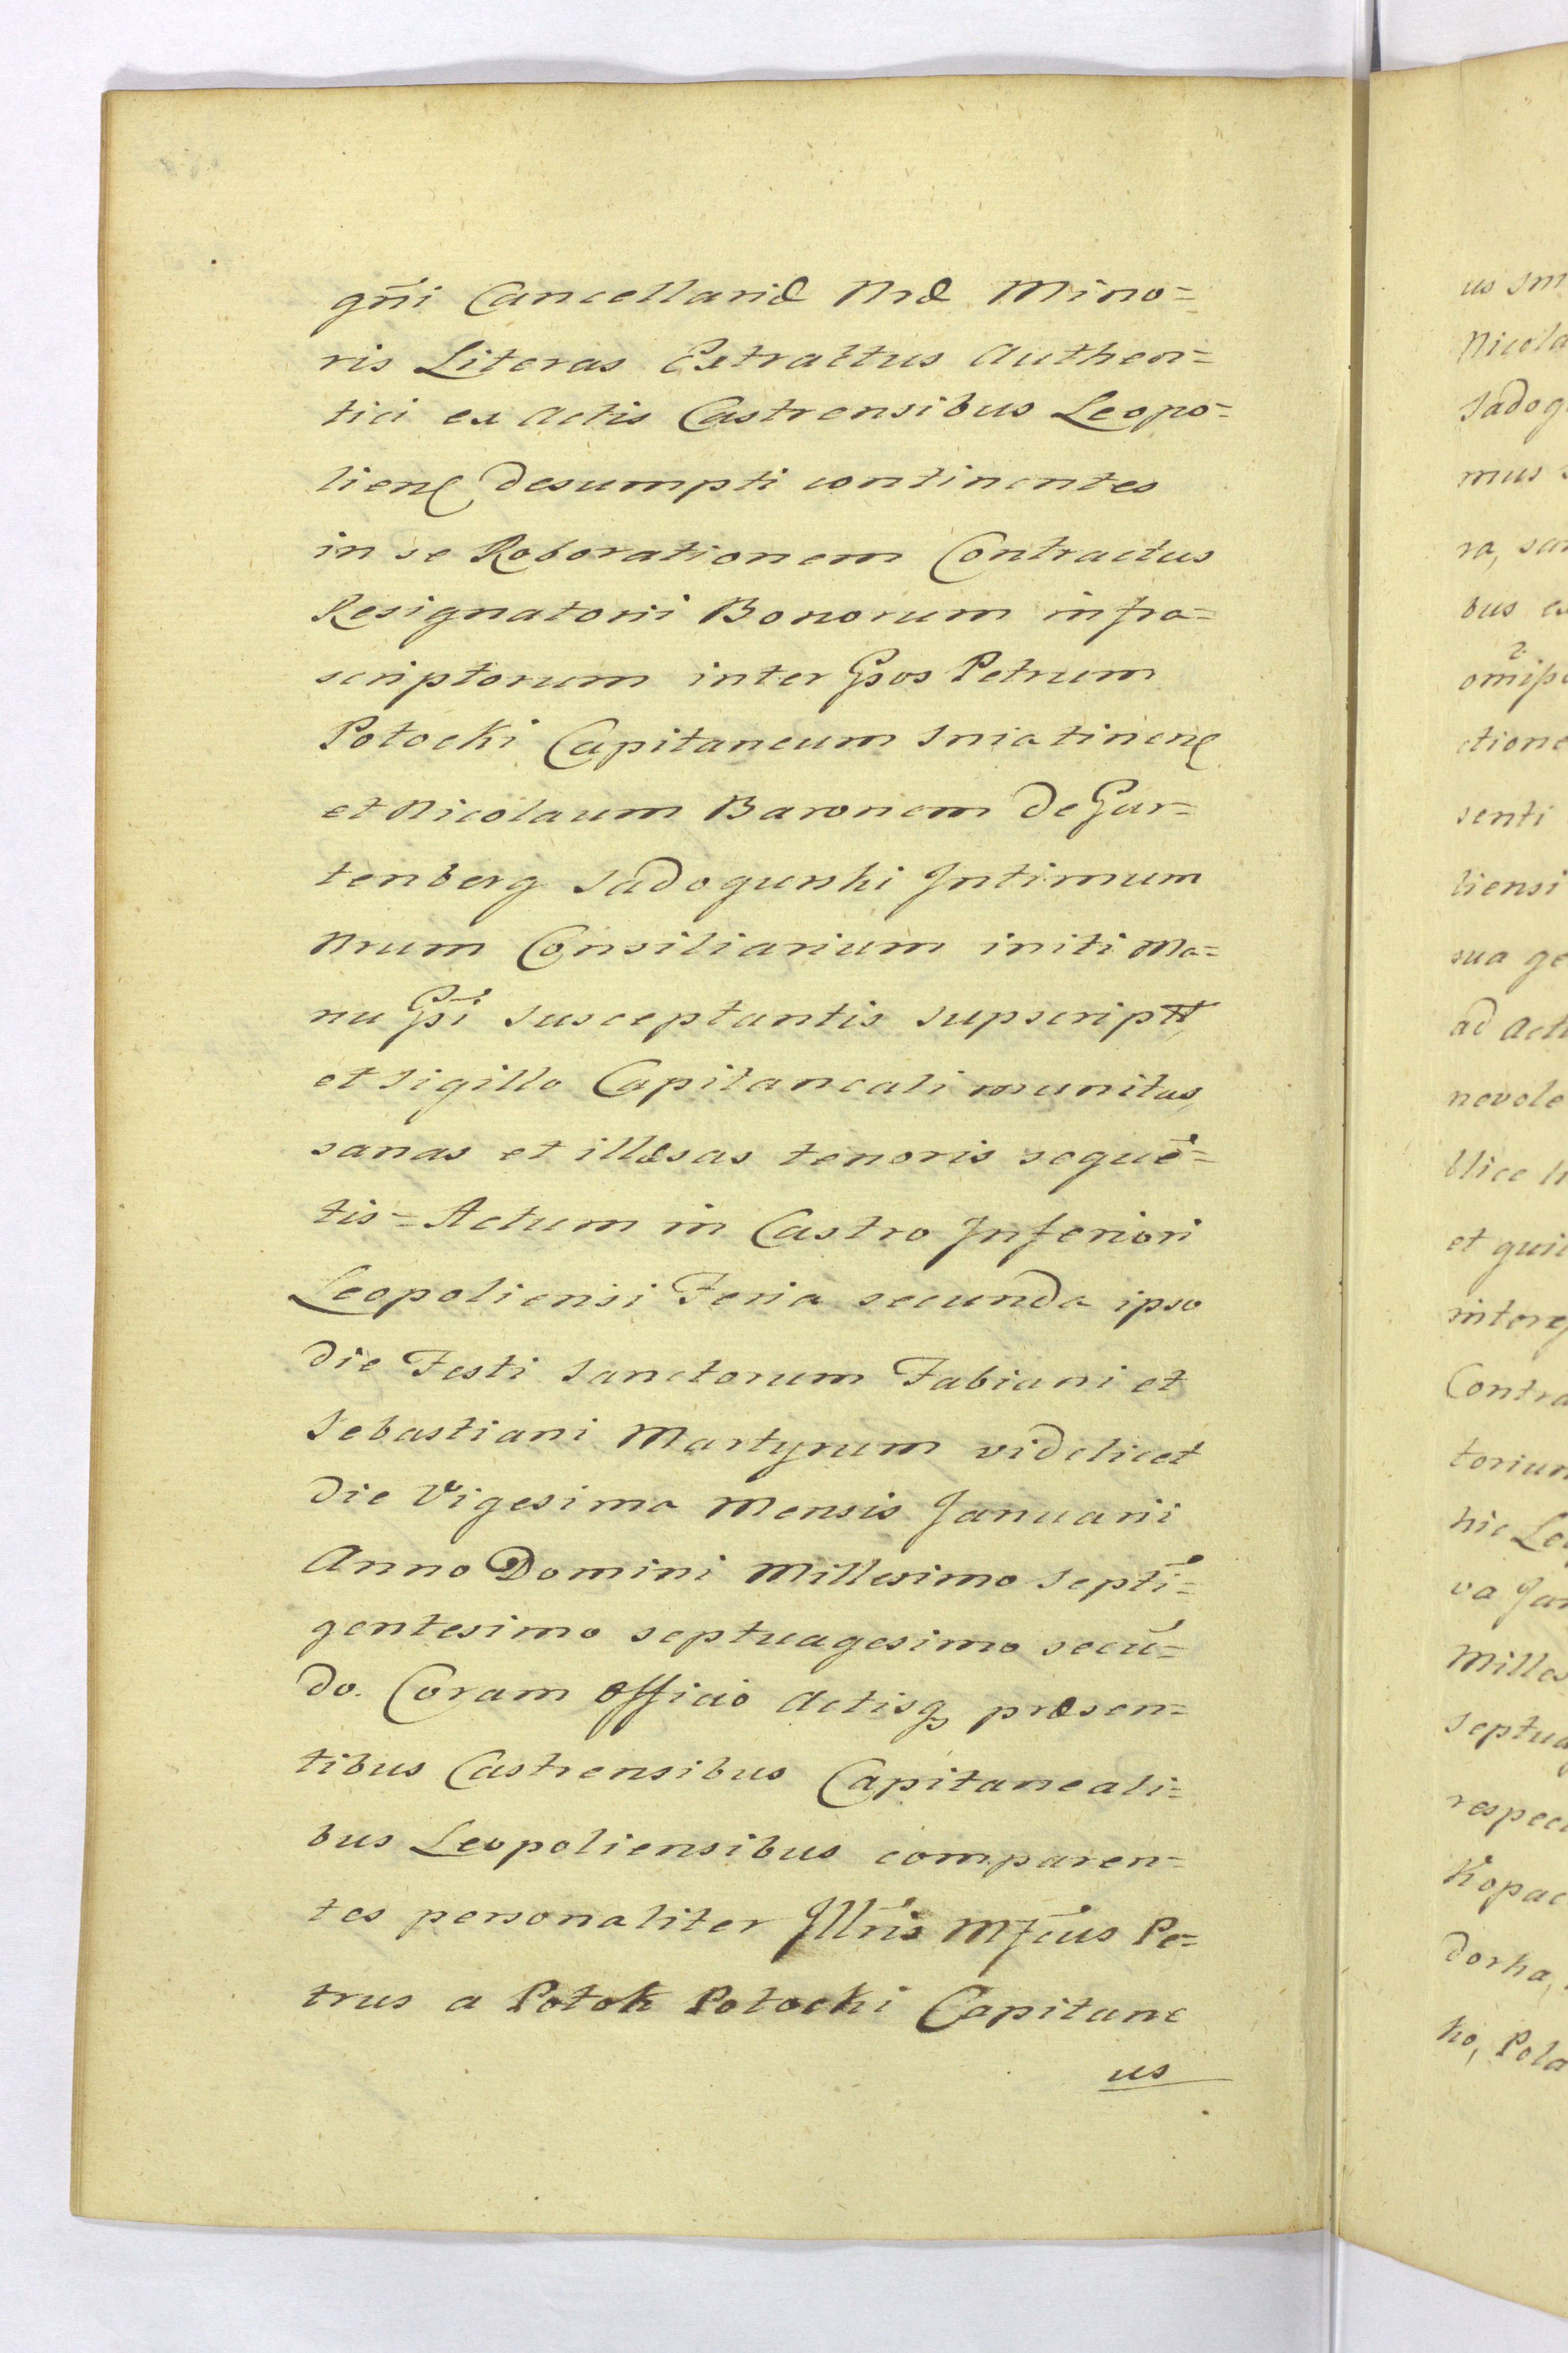 gn̄i Cancellariæ Nræ Mino=
ris Literas Extractus Authen=
tici ex Actis Castrensibus Leopo=
lienę desumpti continentes
in se Roborationem Contractus
Resignatorii Bonorum infra=
scriptorum inter Gsos Petrum
Potocki Capitaneum Sniatinenę
et Nicolaum Baronem de Gar=
tenberg Sadogurski Intimum
Nrum Consiliarium initi Ma=
nu Gsi susceptantis supscriptt,
et sigillo Capitaneali munitas,
sanas et illæsas tenoris sequē=
tis= Actum in Castro Inferiori
Leopoliensi Feria secunda ipso
die Festi Sanctorum Fabiani et
Sebastiani Martyrum videlicet
die Vigesima Mensis Januarii
Anno Domini Millesimo Septī=
gentesimo septuagesimo secū=
do. Coram Officio Actisq præsen=
tibus Castrensibus Capitaneali=
bus Leopoliensibus comparen=
tes personaliter Illris Mfcus Pe=
trus a Potok Potocki Capitane
us
us Sni
Nicola
Sadog
mus
ra, san
bus ex
ctione
senti
liensi
sua ge
ad Act
nevole
et qui
Contra
torium
hic Leo
va Jan
Milles
Septua
respec
Kopac
dorka,
ko, Pola